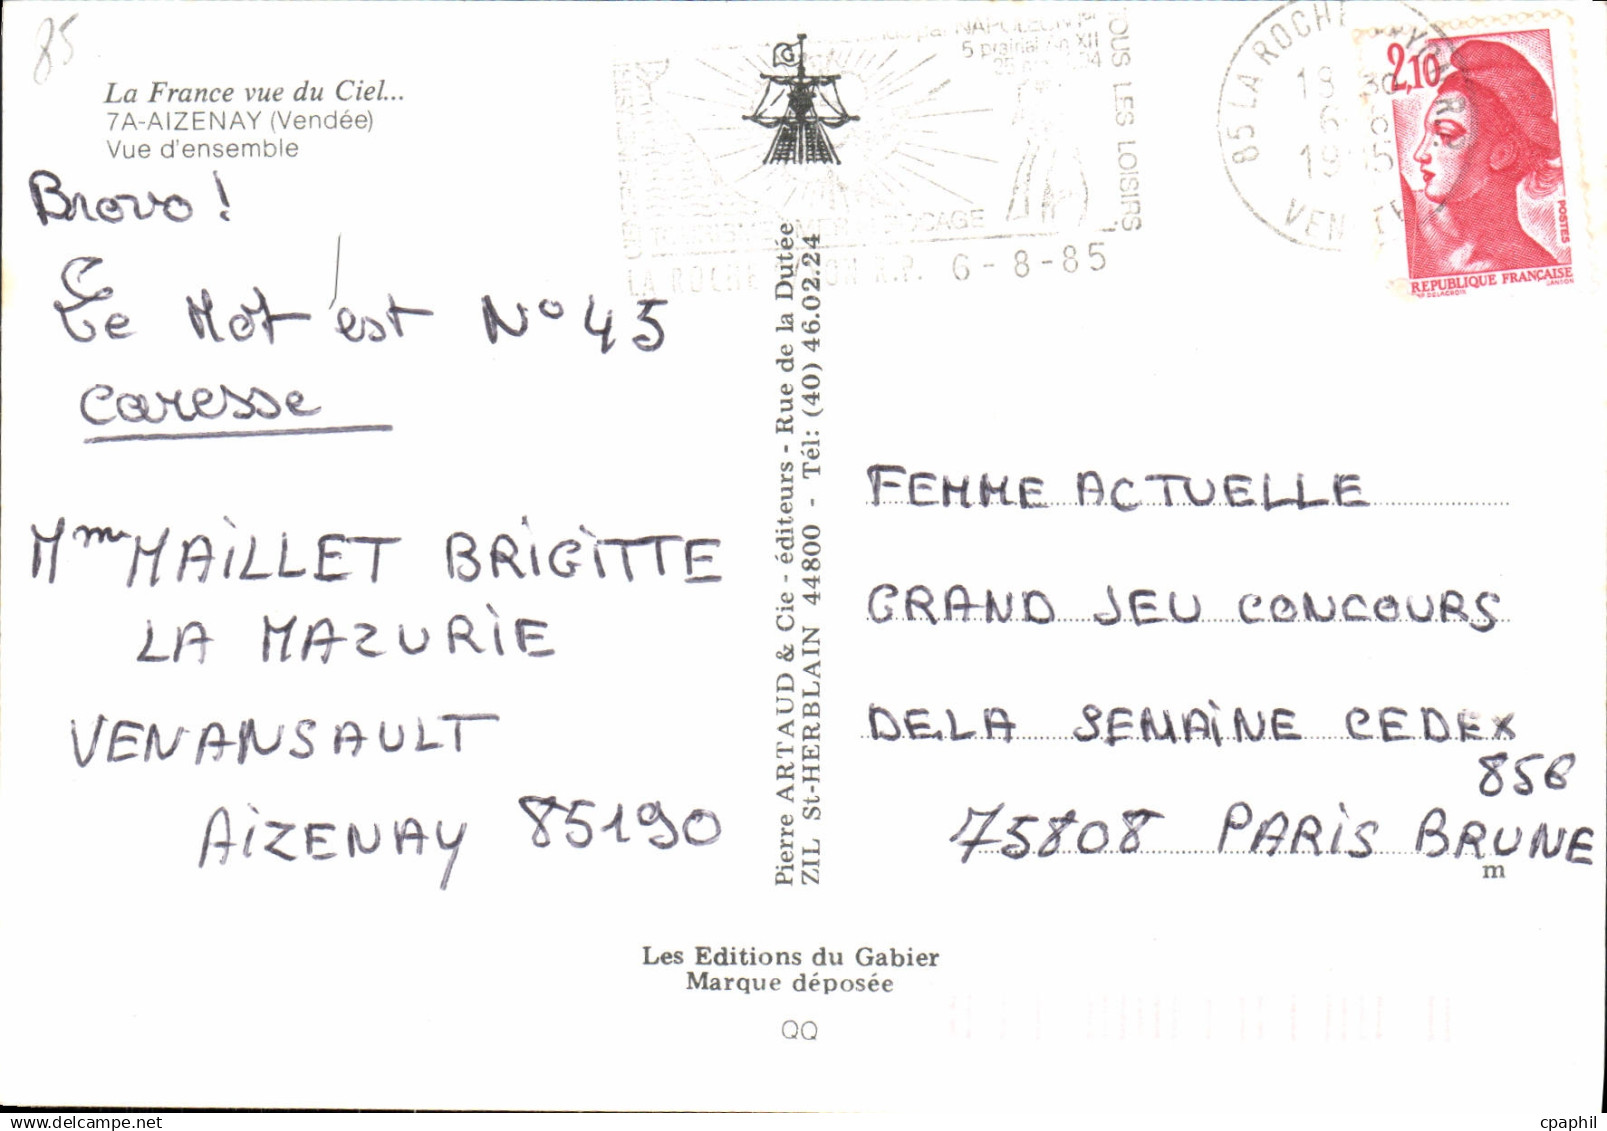 85
La France vue du Ciel...
7A-AIZENAY (Vendée)
Vue d'ensemble
Bravo !
Le Mot est N° 45
caresse
Mme MAiLLET BRiGiTTE
LA MAZURiE
VENANSAULT
AiZENAY 85190
NAPOLEON 1er
5 prairial An XII
TOUS LES LOISIRS
BOCAGE
LA ROCHE YON R.P. 6-8-85
85 LA ROCHE
18 30
2,10
POSTES
REPUBLIQUE FRANÇAISE
Pierre ARTAUD & Cie - éditeurs - Rue de la Dutée
ZIL St-HERBLAIN 44800 - Tél: (40) 46.02.24
FEMME ACTUELLE
GRAND JEU CONCOURS
DE LA SEMAiNE CEDEX
856
75808 PARiS BRUNE
m
Les Editions du Gabier
Marque déposée
QQ
cpaphil